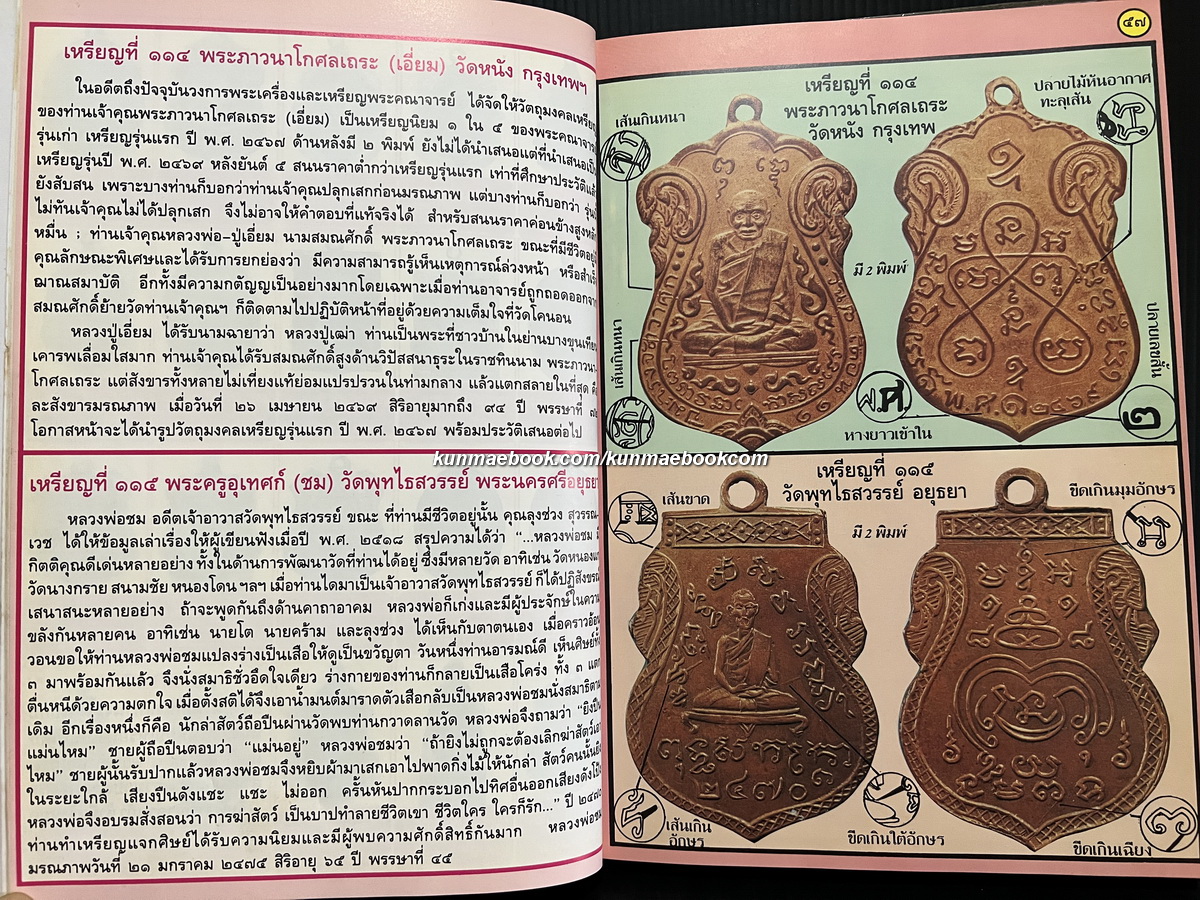 เหรียญที่ ๑๑๔ พระภาวนาโกศลเถระ (เอี่ยม) วัดหนัง กรุงเทพฯ
ในอดีตถึงปัจจุบันวงการพระเครื่องและเหรียญพระคณาจารย์ ได้จัดให้วัตถุมงคลเหรียญ
ของท่านเจ้าคุณพระภาวนาโกศลเถระ (เอี่ยม) เป็นเหรียญนิยม ๑ ใน ๕ ของพระคณาจารย์
รุ่นเก่า เหรียญรุ่นแรก ปี พ.ศ. ๒๔๖๗ ด้านหลังมี ๒ พิมพ์ ยังไม่ได้นำเสนอแต่ที่นำเสนอเป็น
เหรียญรุ่นปี พ.ศ. ๒๔๖๙ หลังยันต์ ๕ สนนราคาต่ำกว่าเหรียญรุ่นแรก เท่าที่ศึกษาประวัติแล้ว
ยังสับสน เพราะบางท่านก็บอกว่าท่านเจ้าคุณปลุกเสกก่อนมรณภาพ แต่บางท่านก็บอกว่า
ไม่ทันเจ้าคุณไม่ได้ปลุกเสก จึงไม่อาจให้คำตอบที่แท้จริงได้ สำหรับสนนราคาค่อนข้างสูงหลัก
หมื่น ; ท่านเจ้าคุณหลวงพ่อ-ปู่เอี่ยม นามสมณศักดิ์ พระภาวนาโกศลเถระ ขณะที่มีชีวิตอยู่
คุณลักษณะพิเศษและได้รับการยกย่องว่า มีความสามารถรู้เห็นเหตุการณ์ล่วงหน้า หรือสำเร็จ
ฌาณสมาบัติ อีกทั้งมีความกตัญญูเป็นอย่างมากโดยเฉพาะเมื่อท่านอาจารย์ถูกถอดออกจาก
สมณศักดิ์ย้ายวัดท่านเจ้าคุณฯ ก็ติดตามไปปฏิบัติหน้าที่อยู่ด้วยความเต็มใจที่วัดโคนอน
หลวงปู่เอี่ยม ได้รับนามฉายาว่า หลวงปู่เฒ่า ท่านเป็นพระที่ชาวบ้านในย่านบางขุนเทียน
เคารพเลื่อมใสมาก ท่านเจ้าคุณได้รับสมณศักดิ์สูงด้านวิปัสสนาธุระในราชทินนาม พระภาวนา
โกศลเถระ แต่สังขารทั้งหลายไม่เที่ยงแท้ย่อมแปรปรวนในท่ามกลาง แล้วแตกสลายในที่สุด คือ
ละสังขารมรณภาพ เมื่อวันที่ ๒๖ เมษายน ๒๔๖๙ สิริอายุมากถึง ๙๔ ปี พรรษาที่ ๗๒
โอกาสหน้าจะได้นำรูปวัตถุมงคลเหรียญรุ่นแรก ปี พ.ศ. ๒๔๖๗ พร้อมประวัติเสนอต่อไป
เหรียญที่ ๑๑๕ พระครูอุเทศก์ (ชม) วัดพุทไธสวรรย์ พระนครศรีอยุธยา
หลวงพ่อชม อดีตเจ้าอาวาสวัดพุทไธสวรรย์ ขณะ ที่ท่านมีชีวิตอยู่นั้น คุณลุงช่วง สุวรรณ-
เวช ได้ให้ข้อมูลเล่าเรื่องให้ผู้เขียนฟังเมื่อปี พ.ศ. ๒๕๑๘ สรุปความได้ว่า “...หลวงพ่อชม
กิตติคุณดีเด่นหลายอย่าง ทั้งในด้านการพัฒนาวัดที่ท่านได้อยู่ ซึ่งมีหลายวัด อาทิเช่น วัดหนองแก
วัดนางกราย สนามชัย หนองโดน ฯลฯ เมื่อท่านได้มาเป็นเจ้าอาวาสวัดพุทไธสวรรย์ ก็ได้ปฏิสังขรณ์
เสนาสนะหลายอย่าง ถ้าจะพูดกันถึงด้านคาถาอาคม หลวงพ่อก็เก่งและมีผู้ประจักษ์ในความ
ขลังกันหลายคน อาทิเช่น นายโต นายคร้าม และลุงช่วง ได้เห็นกับตาตนเอง เมื่อคราวอ้อน
วอนขอให้ท่านหลวงพ่อชมแปลงร่างเป็นเสือให้ดูเป็นขวัญตา วันหนึ่งท่านอารมณ์ดี เห็นศิษย์ทั้ง
๓ มาพร้อมกันแล้ว จึงนั่งสมาธิชั่วอึดใจเดียว ร่างกายของท่านก็กลายเป็นเสือโคร่ง ทั้ง ๓ แตก
ตื่นหนีด้วยความตกใจ เมื่อตั้งสติได้จึงเอาน้ำมนต์มาราดตัวเสือกลับเป็นหลวงพ่อชมนั่งสมาธิตาม
เดิม อีกเรื่องหนึ่งก็คือ นักล่าสัตว์ถือปืนผ่านวัดพบท่านกวาดลานวัด หลวงพ่อจึงถามว่า “ยิงปืน
แม่นไหม” ชายผู้ถือปืนตอบว่า “แม่นอยู่” หลวงพ่อชมว่า “ถ้ายิงไม่ถูกจะต้องเลิกฆ่าสัตว์เอา
ไหม” ชายผู้นั้นรับปากแล้วหลวงพ่อชมจึงหยิบผ้ามาเสกเอาไปพาดกิ่งไม้ให้นักล่า สัตว์คนนั้นยิง
ในระยะใกล้ เสียงปืนดังแชะ แชะ ไม่ออก ครั้นหันปากกระบอกไปทิศอื่นออกเสียงดังโป้ง
หลวงพ่อจึงอบรมสั่งสอนว่า การฆ่าสัตว์ เป็นบาปทำลายชีวิตเขา ชีวิตใคร ใครก็รัก...” ปี ๒๔๗๐
ท่านทำเหรียญแจกศิษย์ได้รับความนิยมและมีผู้พบความศักดิ์สิทธิ์กันมาก หลวงพ่อชม
มรณภาพวันที่ ๒๑ มกราคม ๒๔๗๕ สิริอายุ ๖๕ ปี พรรษาที่ ๔๕
๕๗
เหรียญที่ ๑๑๔
พระภาวนาโกศลเถระ
วัดหนัง กรุงเทพ
เส้นเกินหนา
ปลายไม้หันอากาศ
ทะลุเส้น
มี 2 พิมพ์
เส้นเกินหนา
ปลายเลขสั้น
หางยาวเข้าใน
พ.ศ.
ศ
๒
kunmaebook.com/kunmaebookcom
เหรียญที่ ๑๑๕
วัดพุทไธสวรรย์ อยุธยา
เส้นขาด
ขีดเกินมุมอักษร
มี 2 พิมพ์
๒๔๗๐
เส้นเกิน
อักษร
ขีดเกินใต้อักษร
ขีดเกินเฉียง